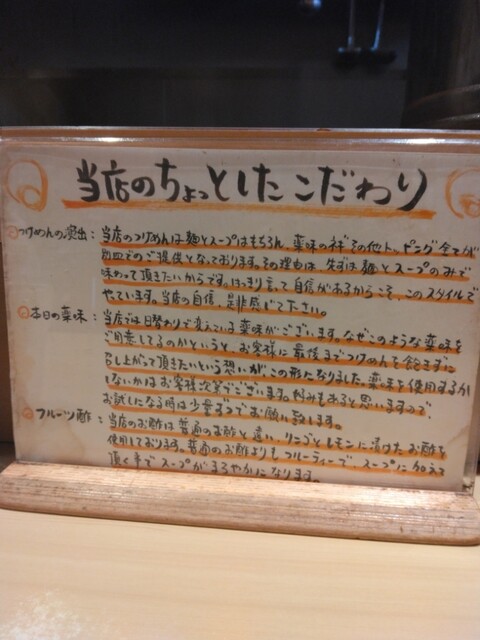 当店のちょっとしたこだわり
○つけめんの演出：当店のつけめんは麺とスープはもちろん、薬味のネギその他トッピング全てが
別皿でのご提供となっております。その理由は、先ずは麺とスープのみで
味わって頂きたいからです。はっきり言って自信があるからこそ、このスタイルで
やています。当店の自信、是非感じて下さい。
○本日の薬味：当店では日替わりで変えている薬味がございます。なぜこのような薬味を
ご用意してるのかというと、お客様に最後までつけめんを飽きずに
召し上がって頂きたいという想いがこの形となりました。薬味を使用するか
しないかはお客様次第でございます。好みもあると思いますので、
お試しになる時は少量ずつでお願い致します。
○フルーツ酢：当店のお酢は普通のお酢と違い、リンゴとレモンに漬けたお酢を
使用しております。普通のお酢よりもフルーティーで、スープに加えて
頂く事でスープがまろやかになります。